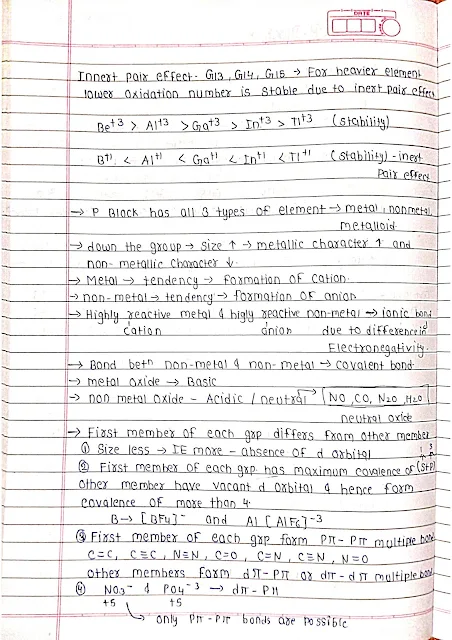 DATE
Innert pair effect- G13, G14, G15 → For heavier element
lower oxidation number is stable due to inert pair effect
Be+3 > Al+3 > Ga+3 > In+3 > Tl+3 (stability)
B+1 < Al+1 < Ga+1 < In+1 < Tl+1 (stability) - inert
Pair effect
→ P Block has all 3 types of element → metal, nonmetal,
metalloid
→ down the group → size ↑ → metallic character ↑ and
non-metallic character ↓.
→ Metal → tendency → formation of cation.
→ non-metal → tendency → formation of anion
→ Highly reactive metal & higly reactive non-metal → ionic bond
cation anion due to difference in
Electronegativity.
→ Bond betn non-metal & non-metal → covalent bond.
→ metal oxide → Basic
→ non metal oxide - Acidic / neutral → NO, CO, N2O, H2O
neutral oxide
→ First member of each grp differs from other member
① Size less → IE more - absence of d orbital
② First member of each grp has maximum covalence of 4 (s+p)
other member have vacant d orbital & hence form
covalence of more than 4.
B → [BF4]- and Al [AlF6]-3
③ First member of each grp form Pπ-Pπ multiple bond
C=C, C≡C, N≡N, C=O, C=N, C≡N, N=O
other members form dπ-Pπ or dπ-dπ multiple bond
④ NO3- & PO4-3 → dπ-Pπ
+5 +5
↳ only Pπ-Pπ bonds are possible